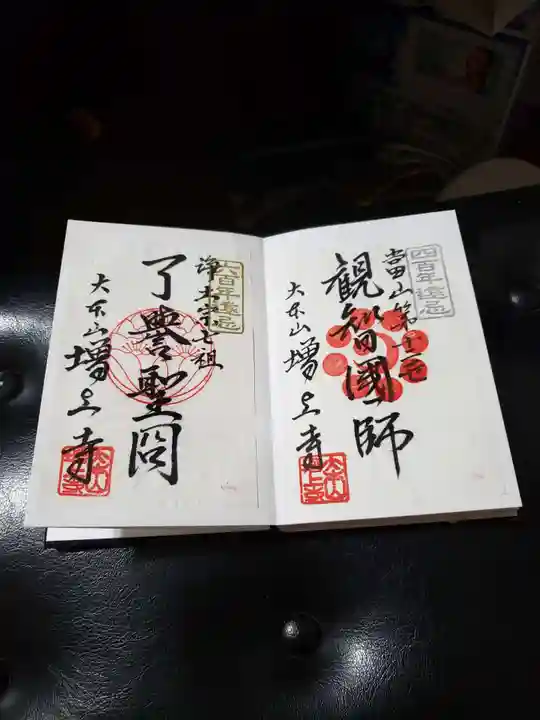 四百年遠忌
當山第十二世
観智國師
大本山増上寺
大本山増上寺
六百年遠忌
浄土宗七祖
了譽聖冏
大本山増上寺
大本山増上寺